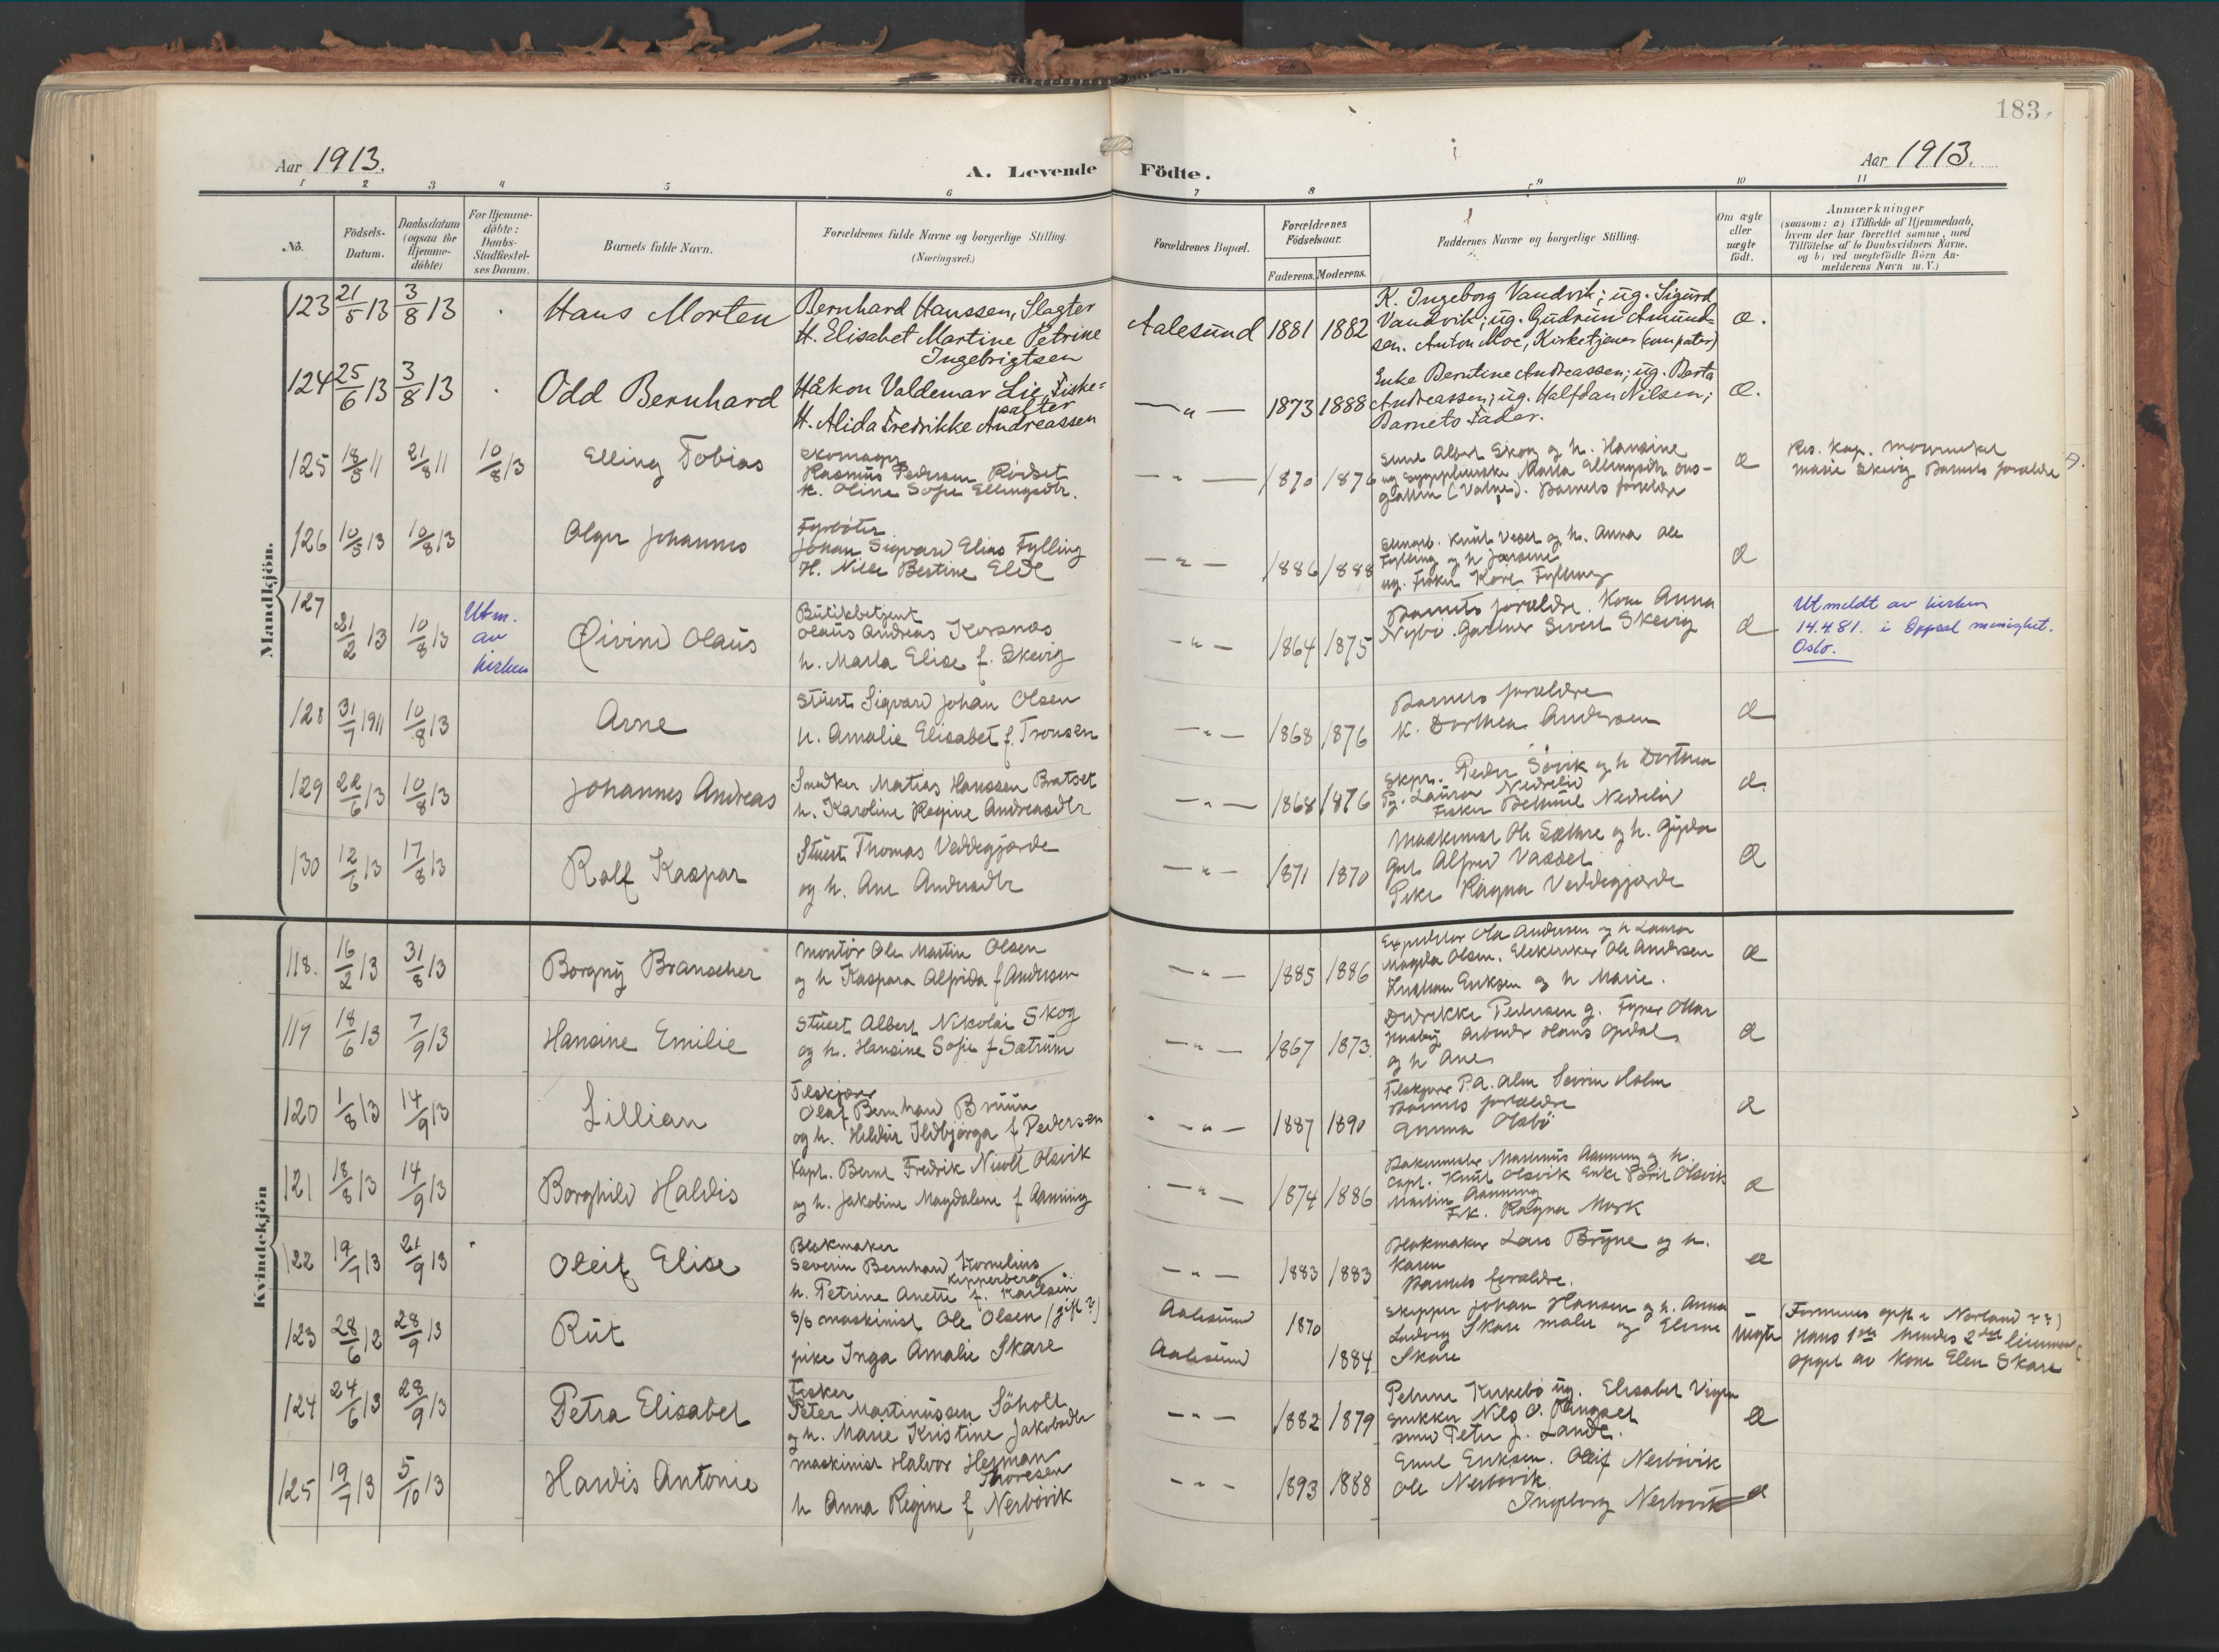 183.
Aar 1913.
A. Levende Födte.
Aar 1913.
1 2 3 4 5 6 7 8 9 10 11
No.
Födsels-Datum.
Daabsdatum (ogsaa for Hjemme-döbte)
For Hjemme-döbte: Daabs-Stadfæstel-ses Datum.
Barnets fulde Navn.
Forældrenes fulde Navne og borgerlige Stilling.
(Næringsvei.)
Forældrenes Bopæl.
Forældrenes Födselsaar.
Faderens. Moderens.
Faddernes Navne og borgerlige Stilling.
Om ægte eller uægte födt.
Anmærkninger
(saasom: a) i Tilfælde af Hjemmedaab,
hvem der har forrettet samme, med
Tilföielse af to Daabsvidners Navne,
og b) ved uægtefödte Börn An-
melderens Navn m. V.)
Mandkjön.
123 21/5 13 3/8 13 Hans Morten
Bernhard Hanssen, Slagter
H. Elisabet Martine Petrine
Ingebrigtsen
Aalesund 1881 1882
K. Ingeborg Vandvik; ug. Sigurd
Vandvik; ug. Gudrun Amund-
sen. Anton Moe, Kirketjener (compater)
æ.
124 25/6 13 3/8 13 Odd Bernhard
Håkon Valdemar Lie, Fiske-
H. Alida Fredrikke Andreassen
— " — 1873 1888
Enke Berntine Andreassen; ug. Berta
Andreassen; ug. Halfdan Nilsen;
Barnets Fader.
æ.
125 18/5 11 21/8 11 10/8 13 Elling Tobias
Skomager
Rasmus Pedersen Rödset
h. Oline Sofie Ellingsdtr.
— " — 1870 1876
Albert Skog og h. Hansine
(Vatne). Barnets forældre
æ
Res. Kap.
Marie Skevig Barnets forældre
126 10/5 13 10/8 13 Olger Johannes
Fyrböter
Johan Sigvard Elias Fylling
H. Nille Bertine Elde
— " — 1886 1888
Knut Vesel og h. Anna Ole
Fylling og h
ug. Fisker Kore Fylling
æ
127 21/2 13 10/8 13
Utm.
av
kirken
Öivind Olaus
Butikbetjent
Olaus Andreas Korsnes
h. Marta Elise f. Skevig
— " — 1864 1875
Barnets forældre. Kone Anna
Nybö. Gartner Sivert Skevig
æ
Utmeldt av kirken
14.4.81. i Oppsal menighet.
Oslo.
128 31/7 1911 10/8 13 Arne
Stuert Sigvard Johan Olsen
h. Amalie Elisabet f. Tronsen
— " — 1868 1876
Barnets forældre
K. Dorthea Andersen
æ
129 22/6 13 10/8 13 Johannes Andreas
Snedker Matias Hanssen Bratset
h. Karoline Regine Andreasdtr
— " — 1868 1876
Ekspr. Peder Sövik og h Dorthea
Pg. Laura Nedrelid
Fisker Nedrelid
æ.
130 12/6 13 17/8 13 Rolf Kaspar
Stuert Thomas Veddegjærde
og h. Ane Andersdtr
— " — 1871 1870
Maskinist Ole Sæthre og h. Gyda
Alfred Vasset
Pike Ragna Veddegjærde
æ
Kvindekjön
118. 16/2 13 31/8 13 Borgny Branscher
Montör Ole Martin Olsen
og h Kaspara Alfrida f Andersen
— " — 1885 1886
Expeditör Ole Andersen og h Laura
Magda Olsen. Elektriker Ole Andersen
Kristian Eriksen og h Marie.
æ
119 18/6 13 7/9 13 Hansine Emilie
Stuert Albert Nikolai Skog
og h. Hansine Sofie f Sætrum
— " — 1867 1873
Didrikke Pedersen g. Fyrer Ottar
Arbeider Hans Opdal
og h Ane
æ
120 1/8 13 14/9 13 Lillian
Tilskjærer
Olaf Bernhard Bruun
og h. Hildur Ildbjörga f Pedersen
— " — 1887 1890
Tilskjærer P. A. Alm Severin Holm
Barnets forældre
Emma Olsbö
æ
121 18/8 13 14/9 13 Borghild Haldis
Kapt. Bernt Fredrik Nicolt Olsvik
og h. Jakobine Magdalene f Aanning
— " — 1874 1886
Bakermester Martinus Aanning og h.
Capt. Knut Olsvik Enke Brit Olsvik
Martin Aanning
Frk. Ragna Mork
æ
122 19/7 13 21/9 13 Oleif Elise
Blokmaker
Severin Bernhard Kornelius
Kipperberg
h. Petrine Anette f. Karlsen
— " — 1883 1883
Blokmaker Lars Bryne og h.
Karen
Barnets forældre.
æ
123 28/6 12 28/9 13 Rut
s/s maskinist Ole Olsen (gift?)
pike Inga Amalie Skare
Aalesund 1870
Aalesund 1884
Skipper Johan Hansen og h. Anna
Ludvig Skare maler og Eline
Skare
uegte
(Formenes opft i Norland ??)
Hans 1ste hendes 2det
opgit av kone Elen Skare
124 24/6 13 28/9 13 Petra Elisabet
Fisker
Peter Martinussen Söholt
og h. Marie Kristine Jakobsdtr
— " — 1882 1879
Petrine Kirkebö ug. Elisabet Vigra
Snekker Nils O.
Peter J. Lande.
æ
125 19/7 13 5/10 13 Hardis Antonie
maskinist Halvor Herman
Thoresen
h Anna Regine f Nerbövik
— " — 1893 1888
Emil Eriksen. Oleif Nerbövik
Ole Nerbövik
Ingeborg Nerbövik
æ